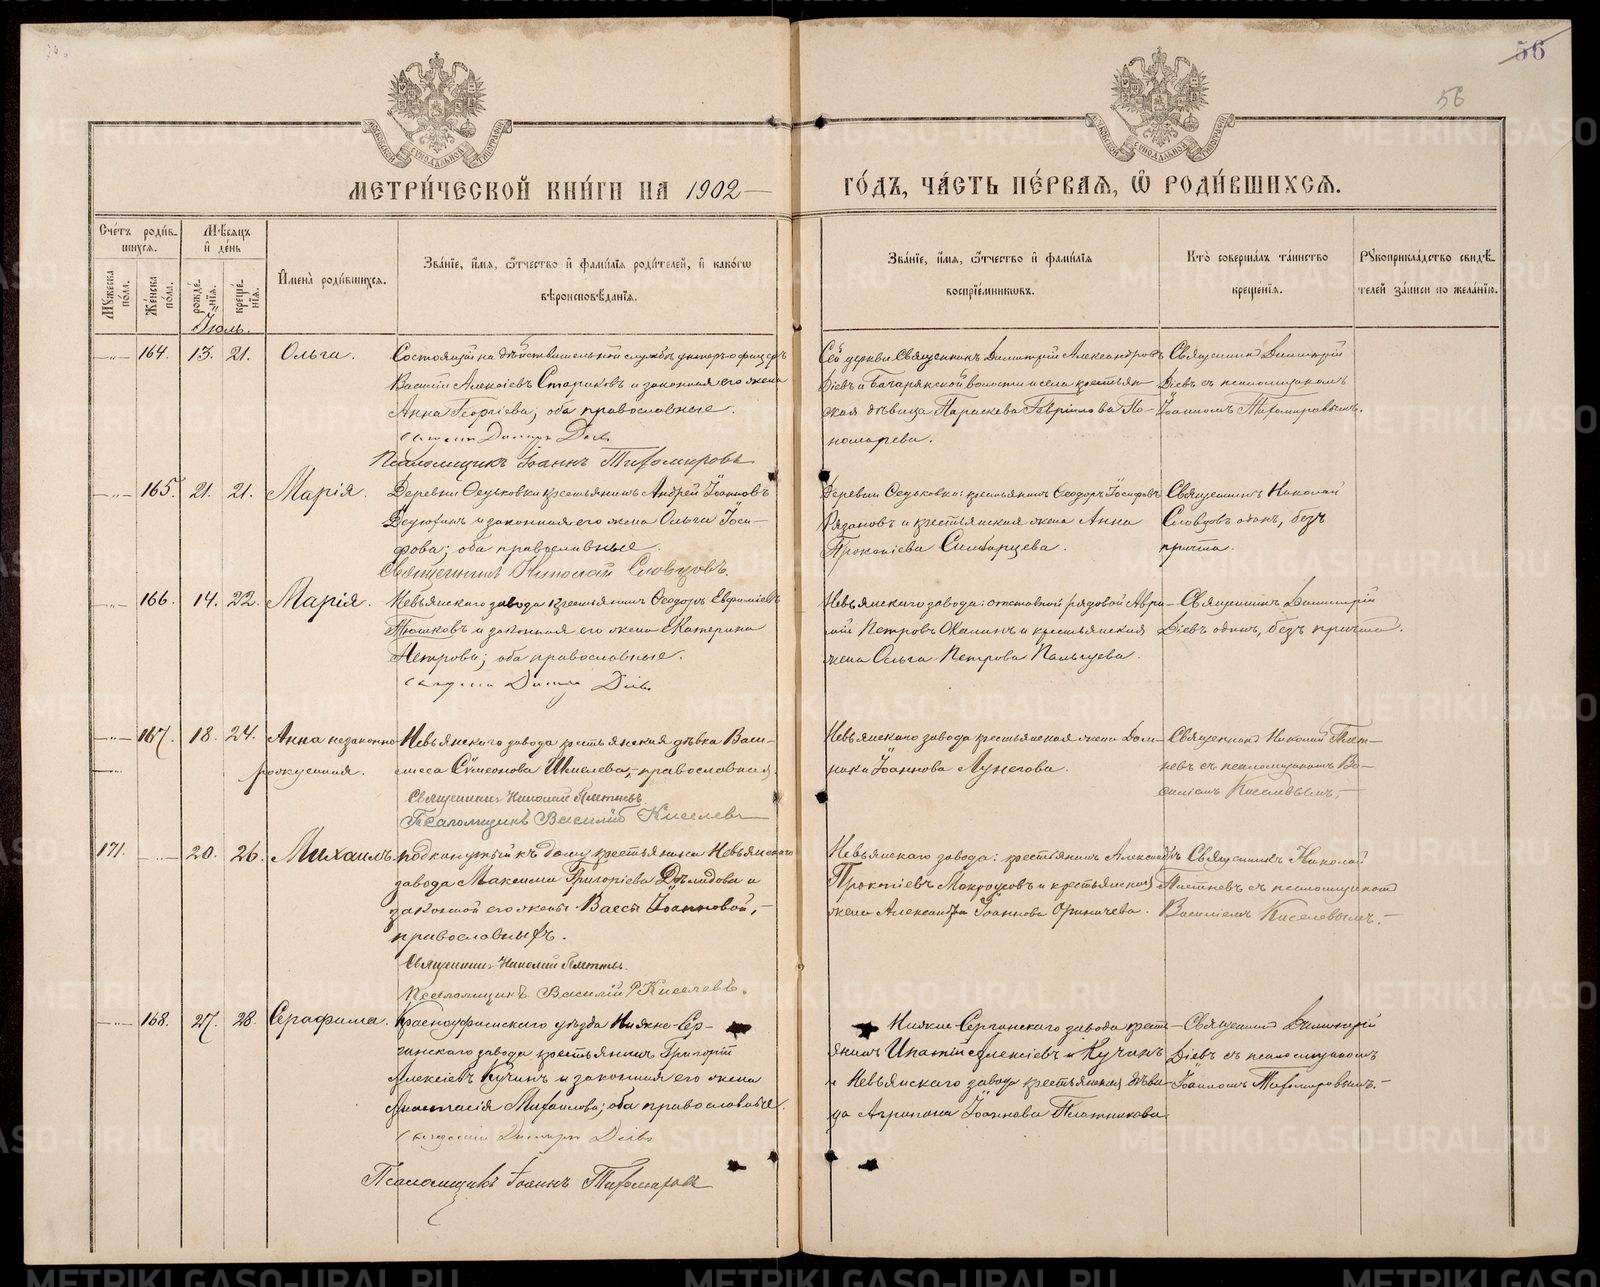 56
56
МЕТРИ́ЧЕСКОЙ КНИ́ГИ НА 1902
ГО́ДЪ, ЧА́СТЬ ПЕ́РВАѦ, Ѽ РОДИ́ВШИХСѦ.
Сче́тъ роди́вшихсѧ.
Мѣ́сѧцъ и҆ де́нь
Мꙋ́жеска по́ла.
Же́нска по́ла.
рожде́нїѧ.
креще́нїѧ.
И҆мена̀ роди́вшихсѧ.
Зва́нїе, и҆́мѧ, ѻ҆́тчество и҆ фами́лїѧ роди́телей, и҆ како́гѡ
вѣроисповѣ́данїѧ.
Зва́нїе, и҆́мѧ, ѻ҆́тчество и҆ фами́лїѧ
воспрїе́мниковъ.
Кто̀ соверша́лъ та́инство
креще́нїѧ.
Рꙋкоприкла́дство свидѣ́-
телей за́писи по жела́нїю.
Іюль.
164. 13. 21. Ольга.
Состоящій на дѣйствительной службѣ унтеръ-офицеръ
Василій Алексіевъ Стариковъ и законная его жена
Анна Георгіева, оба православные.
Псаломщикъ Іоаннъ Тихомировъ
Сей церкви Священникъ Димитрій Александровъ
Діевъ и Багарякской волости и села крестьян-
ская дѣвица Параскева Гавріилова По-
номарева.
Священникъ Димитрій
Діевъ съ псаломщикомъ
Іоанномъ Тихомировымъ.
165. 21. 21. Марія.
Деревни Ѳедьковки крестьянинъ Андрей Іоанновъ
и законная его жена Ольга Іоси-
фова; оба православные.
Священникъ Николай Словцовъ.
Деревни Ѳедьковки: крестьянинъ Ѳеодоръ Іосифовъ
Рязановъ и крестьянская жена Анна
Прокопіева
Священникъ Николай
Словцовъ одинъ, безъ
причта.
166. 14. 22. Марія.
Невьянскаго завода крестьянинъ Ѳеодоръ Евфиміевъ
Тюшковъ и законная его жена Екатерина
Петрова; оба православные.
Невьянскаго завода: отставной рядовой
Петровъ и крестьянская
жена Ольга Петрова Пальцева.
Священникъ Димитрій
Діевъ одинъ, безъ причта.
167. 18. 24. Анна незаконно-
рожденная.
Невьянскаго завода крестьянская дѣвка Васи-
лисса Сѵмеонова Шмелева, православная.
Священникъ Николай Плетневъ.
Псаломщикъ Василій Киселевъ
Невьянскаго завода крестьянская жена Дом-
ника Іоаннова Лунегова.
Священникъ Николай Плет-
невъ съ псаломщикомъ Ва-
силіемъ Киселевымъ.
171. 20. 26. Михаилъ.
подкинутый къ дому крестьянина Невьянскаго
завода Максима Григоріева Дѣмидова и
законной его жены Вассы Іоанновой,
православныхъ.
Священникъ Николай Плетневъ.
Псаломщикъ Василій Киселевъ.
Невьянскаго завода: крестьянинъ Александръ
Прокопіевъ Мокроусовъ и крестьянская
жена Александра Іоаннова
Священникъ Николай
Плетневъ съ псаломщикомъ
Василіемъ Киселевымъ.
168. 27. 28. Серафима.
Красноуфимскаго уѣзда Нижне-Сер-
гинскаго завода крестьянинъ Григорій
Алексіевъ Кучинъ и законная его жена
Анастасія Михаилова; оба православные.
Псаломщикъ Іоаннъ Тихомировъ
Нижне-Сергинскаго завода кресть-
янинъ Ипатій Алексіевъ Кучинъ
и Невьянскаго завода крестьянская дѣви-
ца Агрипина Іоаннова Плотникова.
Священникъ Димитрій
Діевъ съ псаломщикомъ
Іоанномъ Тихомировымъ.
METRIKI.GASO-URAL.RU